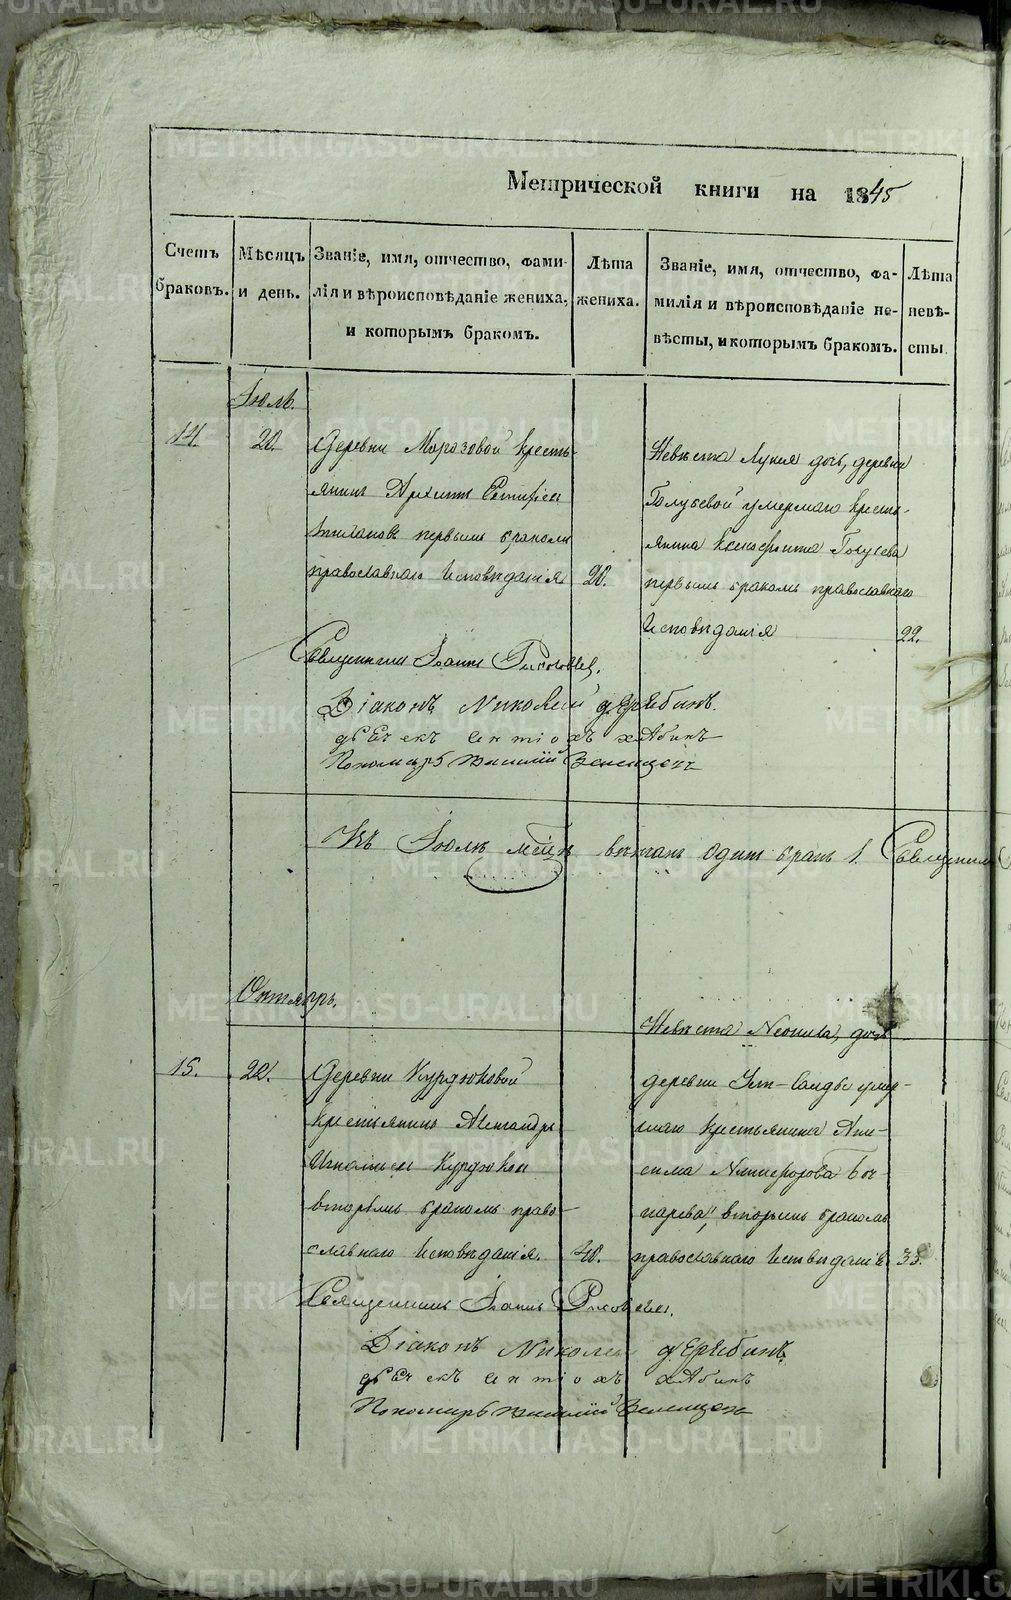 Метрической книги на 1845
Счетъ браковъ.
Мѣсяцъ и день.
Званіе, имя, отчество, фами-
лія и вѣроисповѣданіе жениха,
и которымъ бракомъ.
Лѣта
жениха.
Званіе, имя, отчество, фа-
милія и вѣроисповѣданіе не-
вѣсты, и которымъ бракомъ.
Лѣта
невѣ-
сты.
Іюль.
14.
20.
Деревни Морозовой кресть-
янинъ Архипъ
первымъ бракомъ
православнаго Исповѣданія
20.
Невѣста Лукея дочь, деревни
Голубевой умершаго кресть-
янина Ксенофонта Голубева
первымъ бракомъ православнаго
Исповѣданія
22.
Священникъ Іоаннъ
Діаконъ Николай Дерябинъ.
дьячекъ антіохъ хлябинъ
Пономарь Василій
Въ Іюлѣ мѣсяцѣ вѣнчанъ одинъ бракъ 1. Священникъ
Октябрь.
15.
22.
Деревни Курдюковой
Крестьянинъ Александръ
Игнатьевъ Курдюковъ
вторымъ бракомъ право-
славнаго Исповѣданія.
40.
Невѣста Неонила, дочь
деревни Усть-Салды умер-
шаго Крестьянина Ани-
сима Никифорова Бо-
чкарева, вторымъ бракомъ
православнаго Исповѣданія
33.
Священникъ Іоаннъ
Діаконъ Николай Дерябинъ
дьячекъ антіохъ хлябинъ
Пономарь Василій
METRIKI.GASO-URAL.RU